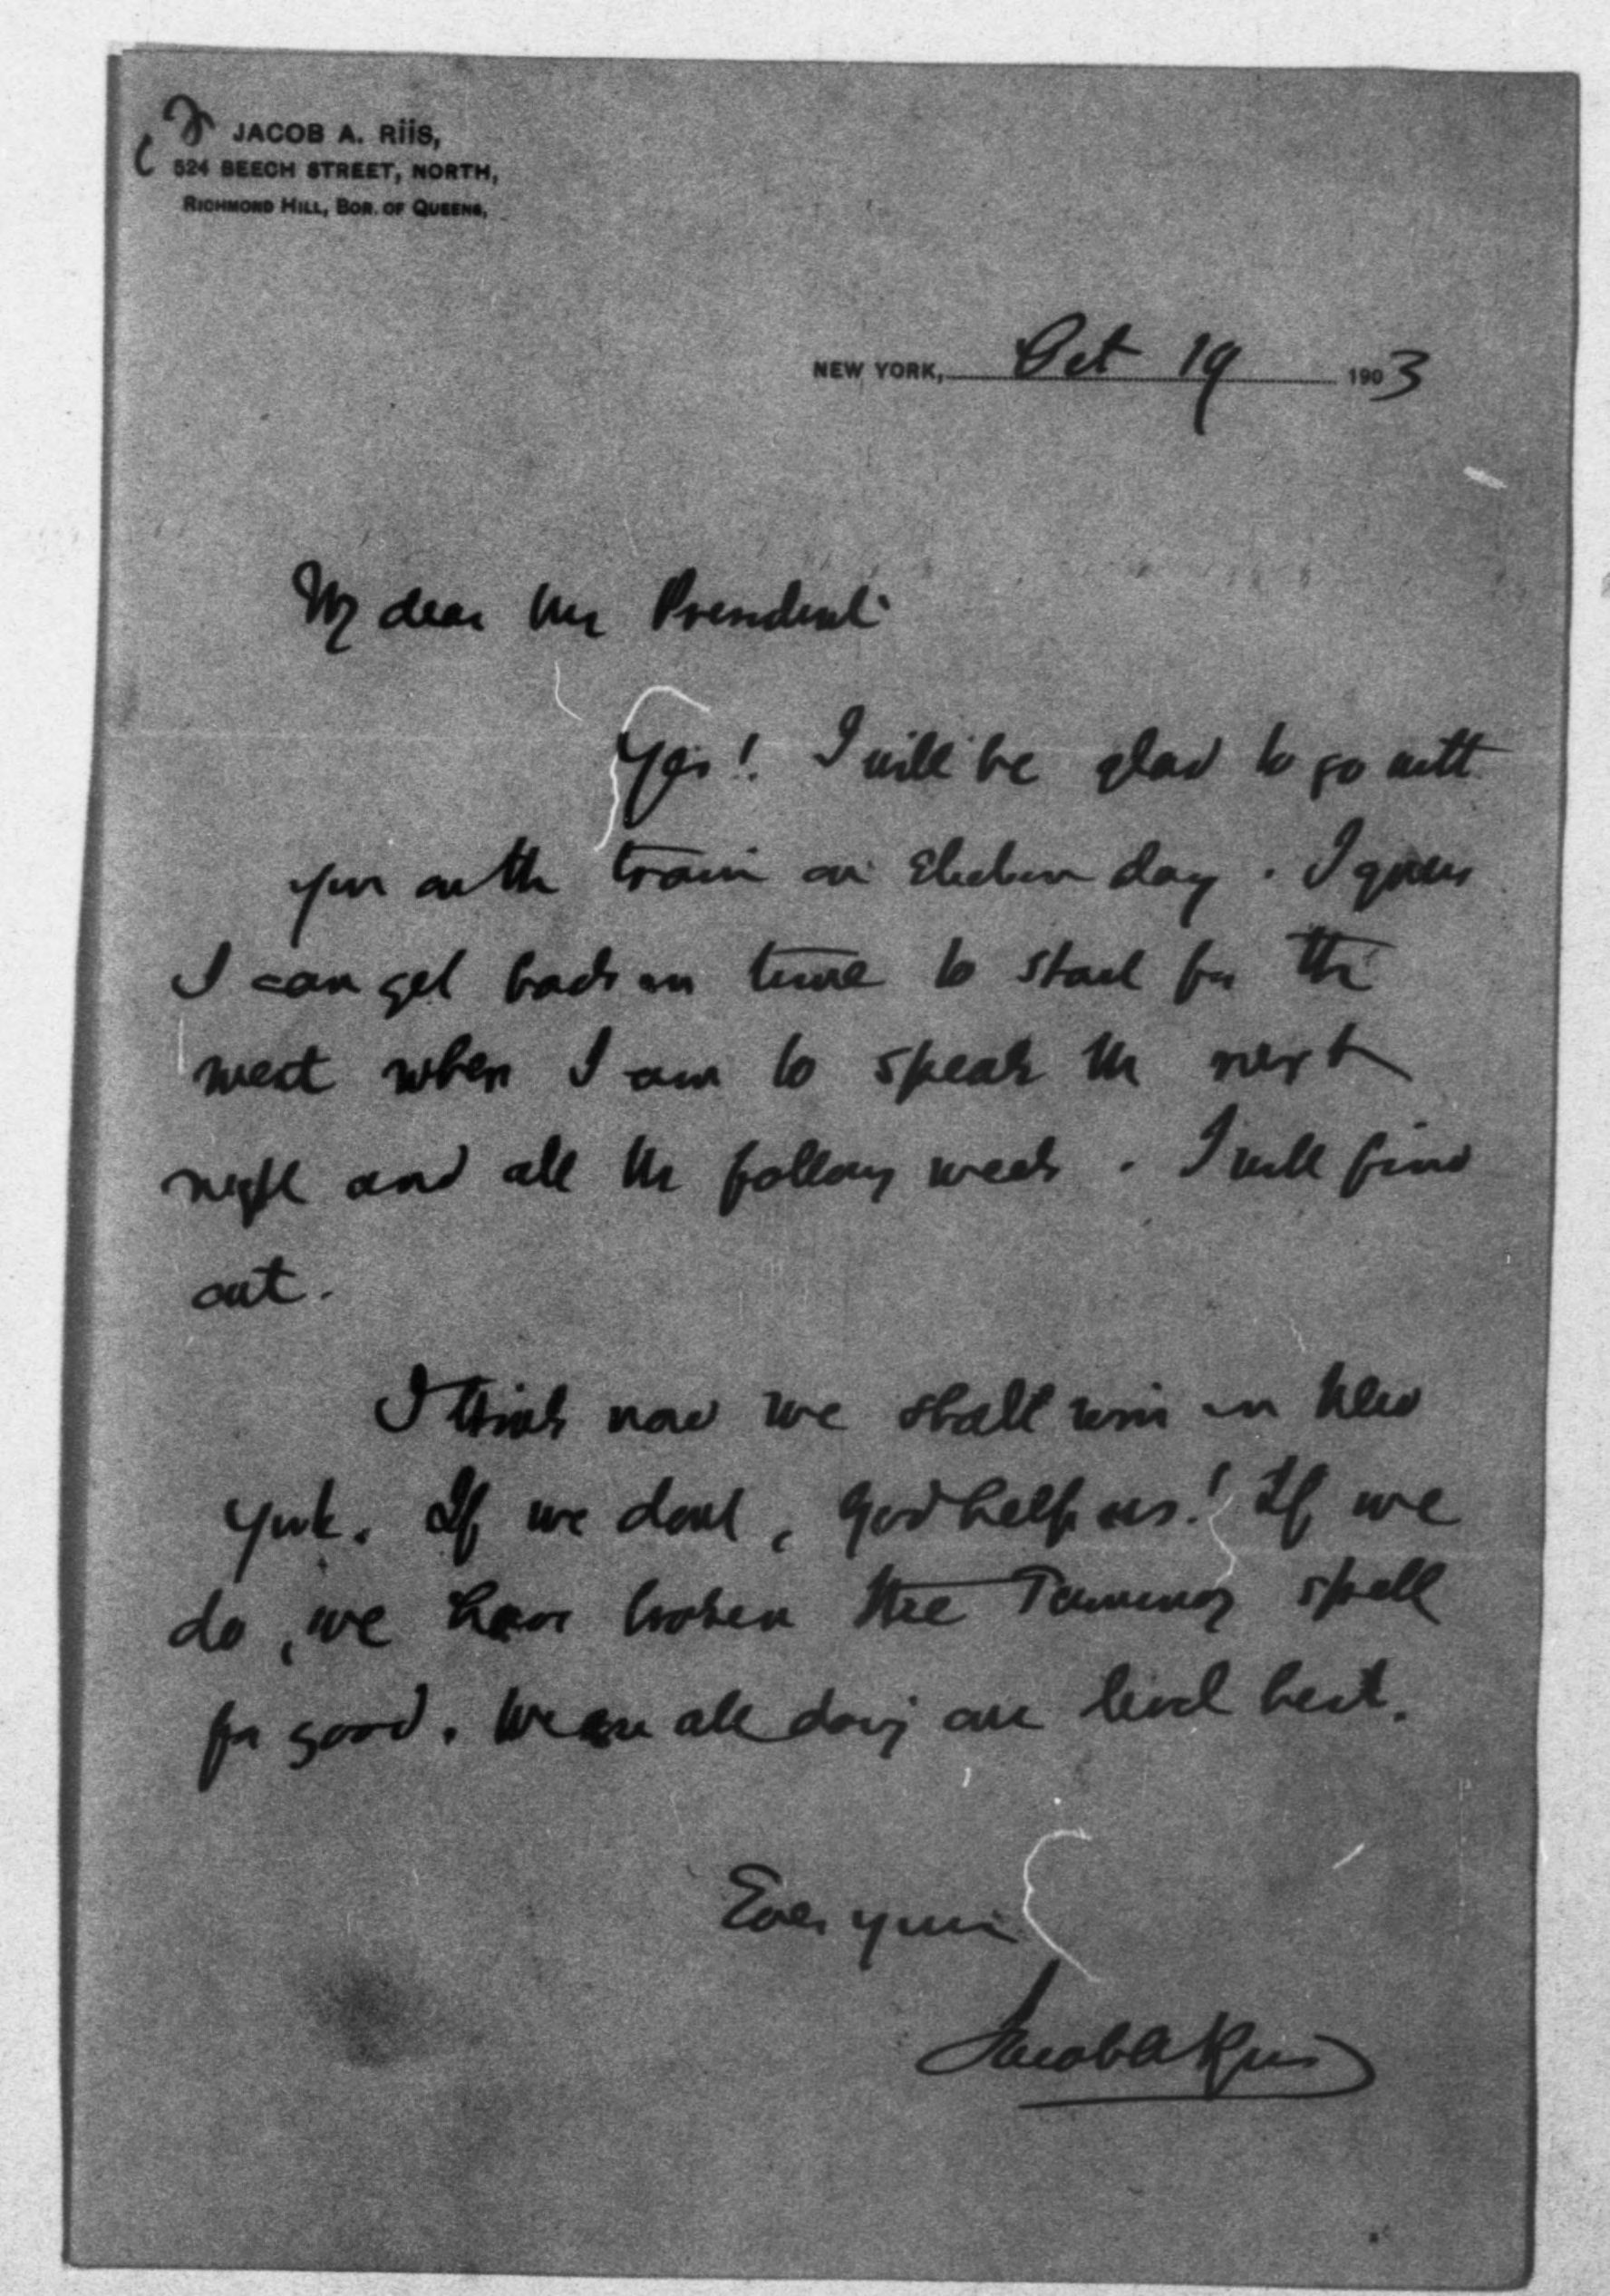 JACOB A. RIIS,
524 BEECH STREET, NORTH,
RICHMOND HILL, BOR. OF QUEENS,
NEW YORK, Oct 19 1903
My dear Mr President
Yes! I will be glad to go with
you on the train on Election day. I guess
I can get back in time to start for the
west when I am to speak the next
night and all the follong week. I will find
out.
I think now we shall win in New
York. If we dont, God help us! If we
do, we have broken the Tammany spell
for good. We are all doing our level best.
Ever yours
Jacob A Riis